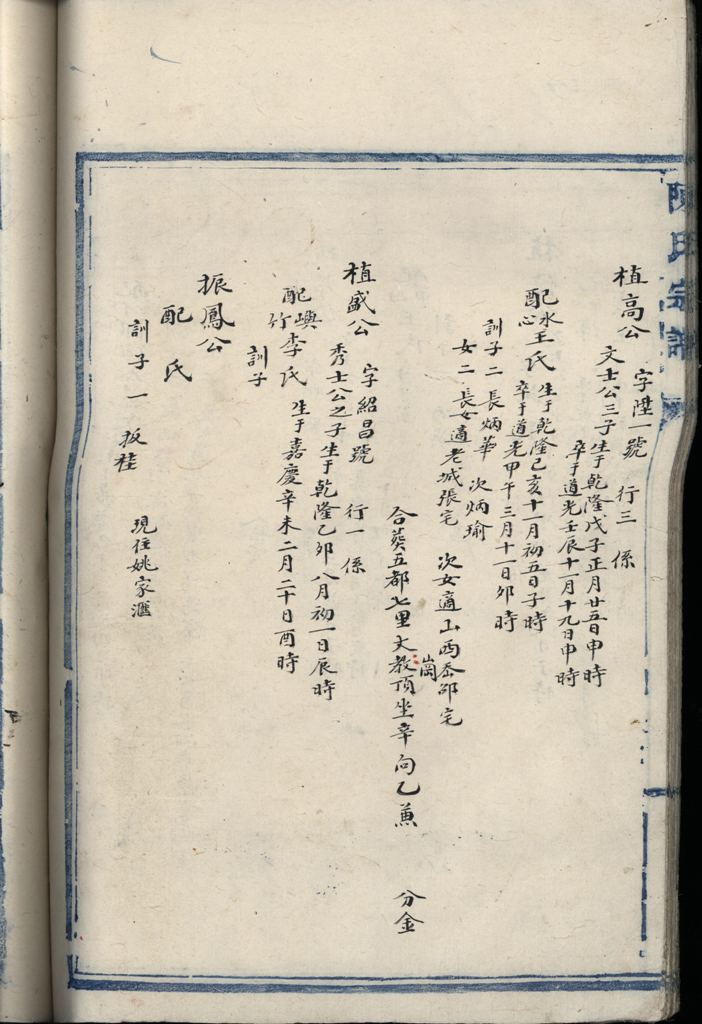 陳氏宗譜
植高公 字陞一號 行三 係
文士公三子生于乾隆戊子正月廿五日申時
卒于道光壬辰十一月十九日申時
配水心王氏生于乾隆己亥十一月初五日子時
卒于道光甲午三月十一日卯時
訓子二 長炳華 次炳瑜
女二 長女適老城張宅 次女適山西岙邵宅
合葬五都七里大教崗頂坐辛向乙兼 分金
植盛公 字紹昌號 行一 係
秀士公之子生于乾隆乙卯八月初一日辰時
配嶼竹李氏 生于嘉慶辛未二月二十日酉時
訓子
振鳳公
配 氏
訓子一 振桂 現住姚家滙